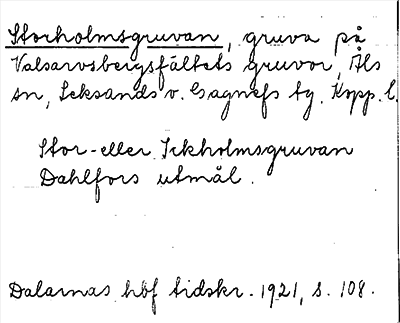 Storholmsgruvan, gruva på
Valsarvsbergsfältets gruvor, Åls
sn, Leksands o. Gagnefs tg. Kopp. l.
Stor- eller Ickholmsgruvan
Dahlfors utmål.
Dalarnas hbf tidskr. 1921, s. 108.